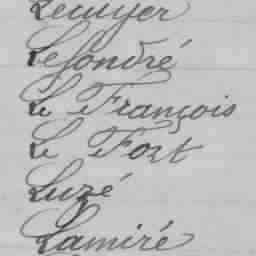 Lecuyer
Lefondré
Le François
Le Fort
Luzé
Lamiré